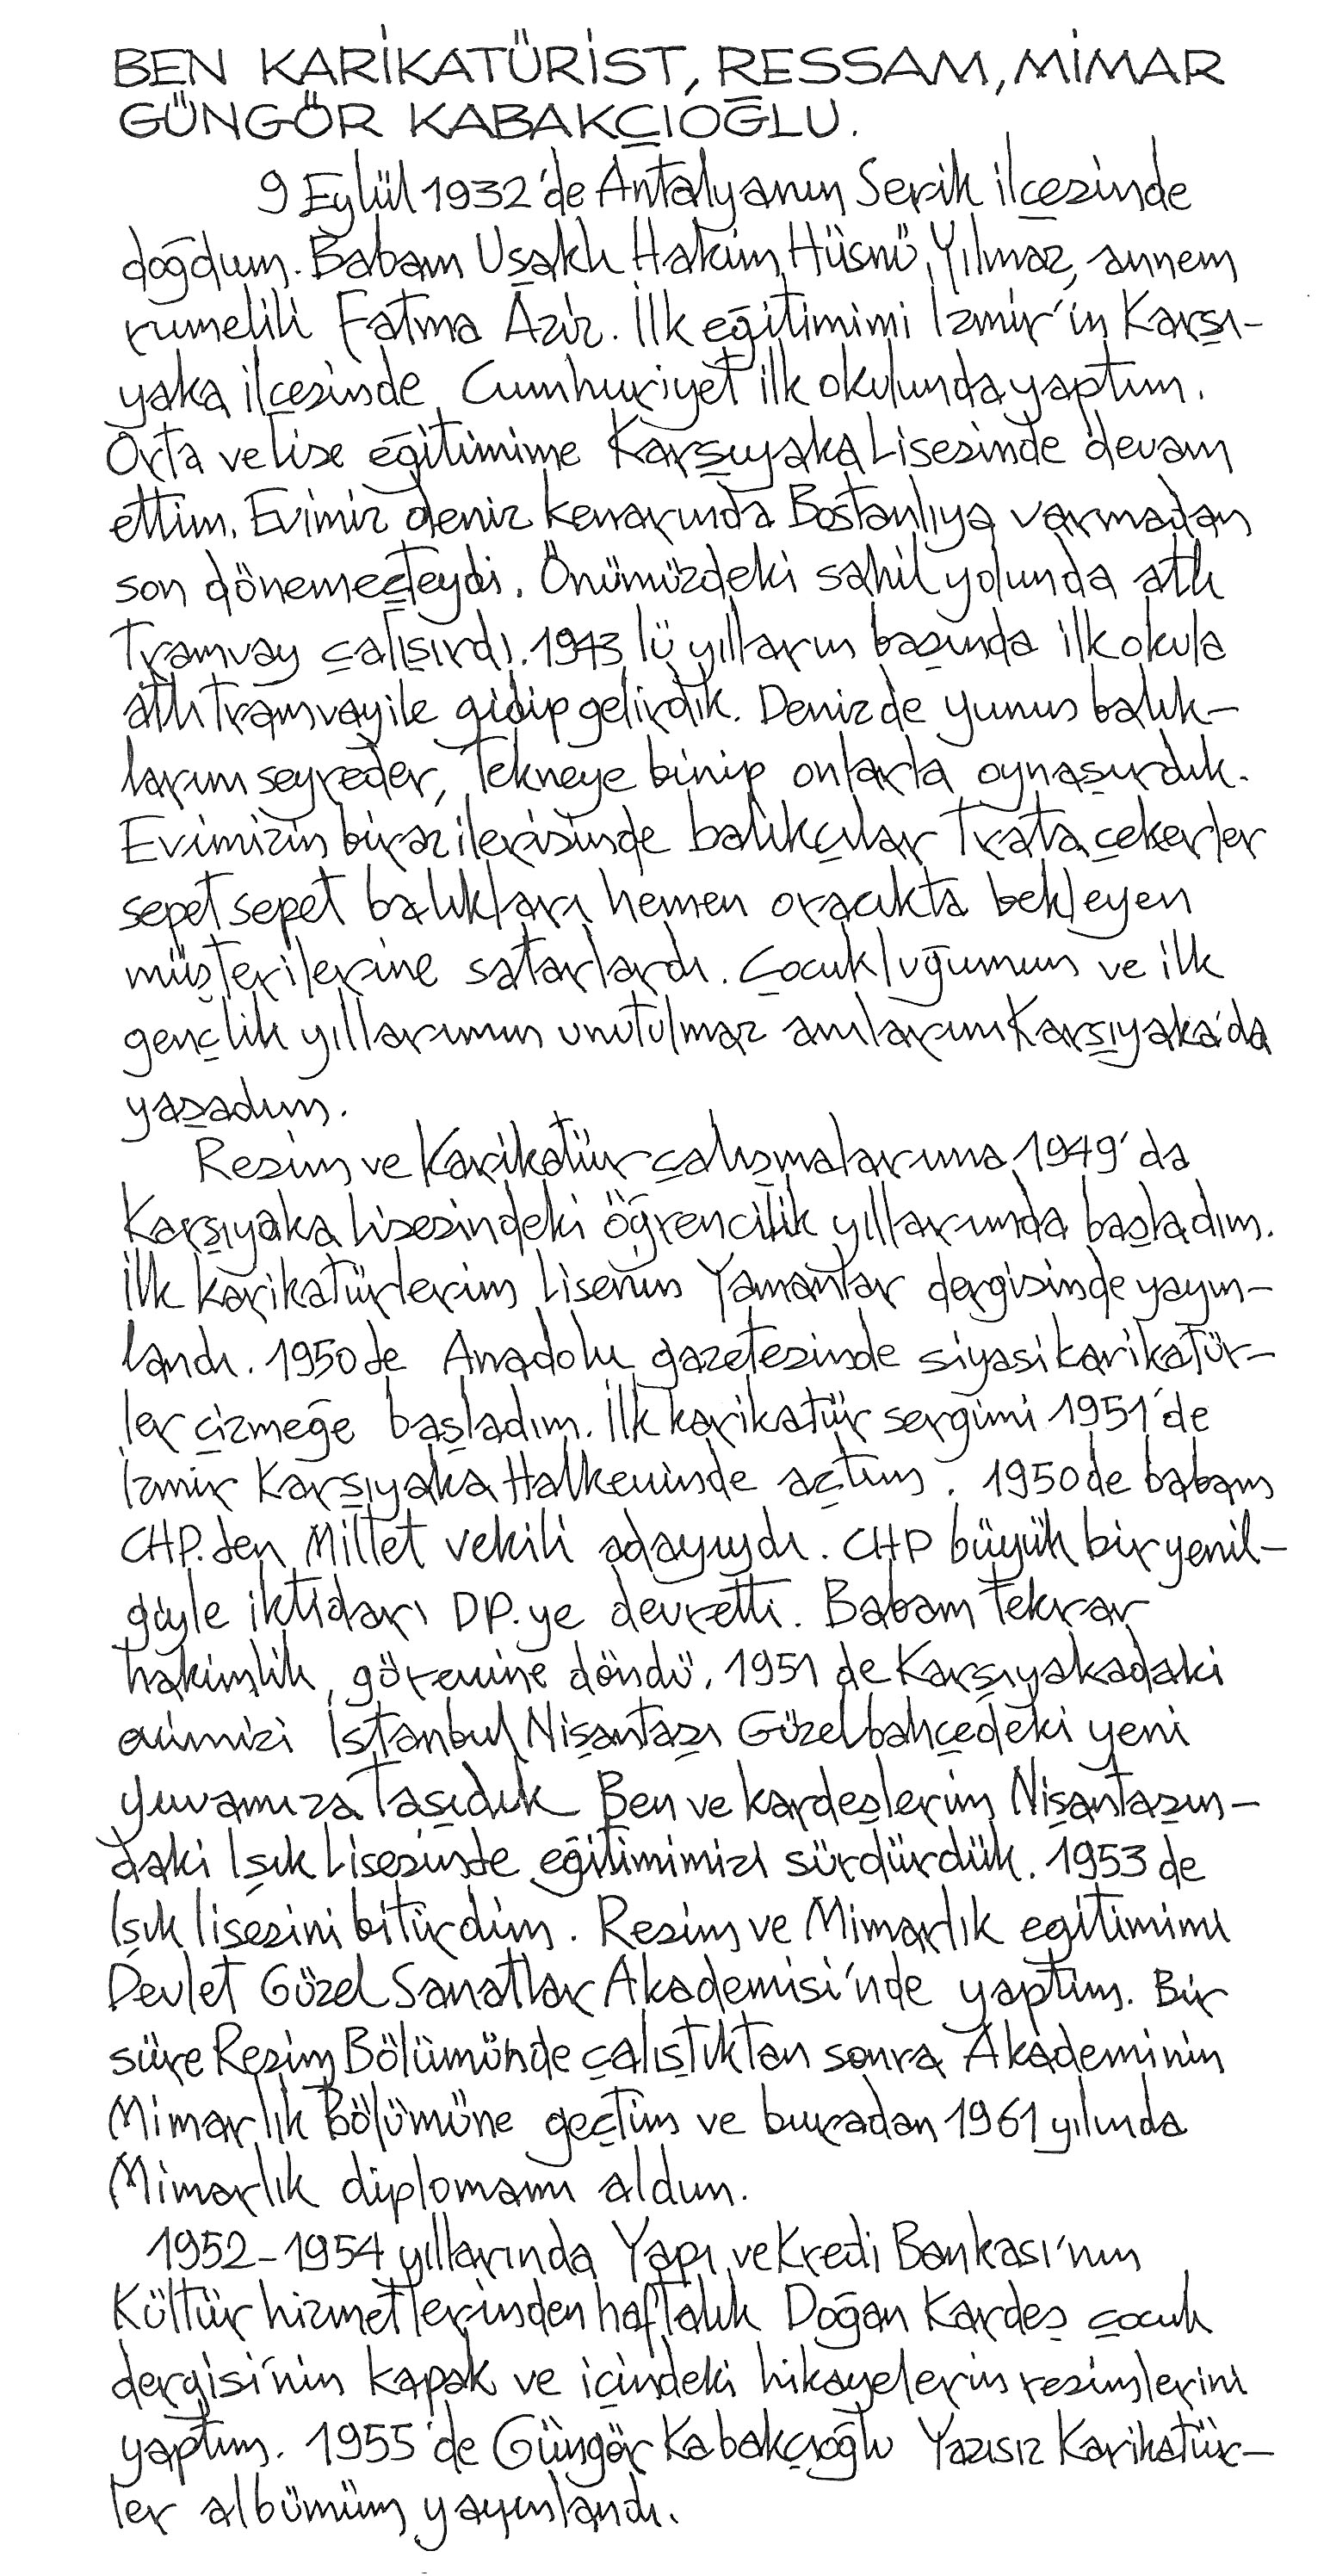 BEN KARİKATÜRİST, RESSAM, MİMAR
GÜNGÖR KABAKÇIOĞLU.
9 Eylül 1932'de Antalyanın Serik ilçesinde
doğdum. Babam Uşaklı Hakim Hüsnü Yılmaz, annem
rumelili Fatma Âziz. İlk eğitimimi İzmir'in Karşı-
yaka ilçesinde Cumhuriyet ilk okulunda yaptım.
Orta ve lise eğitimime Karşıyaka Lisesinde devam
ettim. Evimiz deniz kenarında Bostanlıya varmadan
son dönemeçteydi. Önümüzdeki sahil yolunda atlı
Tramvay çalışırdı. 1943 lü yılların başında ilk okula
atlı tramvay ile gidip gelirdik. Denizde yunus balık-
larını seyreder, tekneye binip onlarla oynaşırdık.
Evimizin biraz ilerisinde balıkçılar Trata çekerler
sepet sepet balıkları hemen oracıkta bekleyen
müşterilerine satarlardı. Çocukluğumun ve ilk
gençlik yıllarımın unutulmaz anılarını Karşıyaka'da
yaşadım.
Resim ve Karikatür çalışmalarıma 1949'da
Karşıyaka lisesindeki öğrencilik yıllarımda başladım.
İlk karikatürlerim Lisenin Yamanlar dergisinde yayın-
landı. 1950 de Anadolu gazetesinde siyasi karikatür-
ler çizmeğe başladım. İlk karikatür sergimi 1951'de
İzmir Karşıyaka Halkevinde açtım. 1950 de babam
CHP.den Millet vekili adayıydı. CHP büyük bir yenil-
giyle iktidarı DP.ye devretti. Babam tekrar
hakimlik görevine döndü. 1951 de Karşıyakadaki
evimizi İstanbul Nişantaşı Güzelbahçedeki yeni
yuvamıza taşıdık Ben ve kardeşlerim Nişantaşın-
daki Işık Lisesinde eğitimimizi sürdürdük. 1953 de
Işık lisesini bitirdim. Resim ve Mimarlık egitimimi
Devlet Güzel Sanatlar Akademisi'nde yaptım. Bir
süre Resim Bölümünde çalıştıktan sonra Akademinin
Mimarlık Bölümüne geçtim ve buradan 1961 yılında
Mimarlık diplomamı aldım.
1952-1954 yıllarında Yapı ve Kredi Bankası'nın
Kültür hizmetlerinden haftalık Doğan Kardeş çocuk
dergisi'nin kapak ve içindeki hikayelerin resimlerini
yaptım. 1955'de Güngör Kabakçıoğlu Yazısız Karikatür-
ler albümüm yayınlandı.